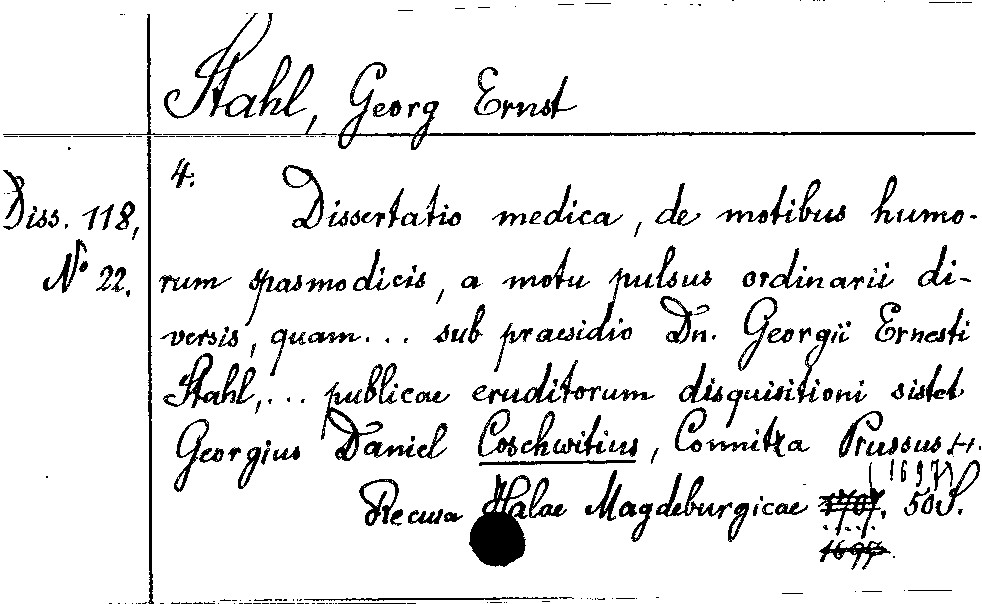 Stahl, Georg Ernst
4.
Diss. 118,
No 22.
Dissertatio medica, de motibus humo-
rum spasmodicis, a motu pulsus ordinarii di-
versis, quam... sub praesidio Dn. Georgii Ernesti
Stahl,... publicae eruditorum disquisitioni sistet
Georgius Daniel Coschwitius, Connitza Prussus
(1697)
Recusa Halae Magdeburgicae 1707. 50S.
1697.